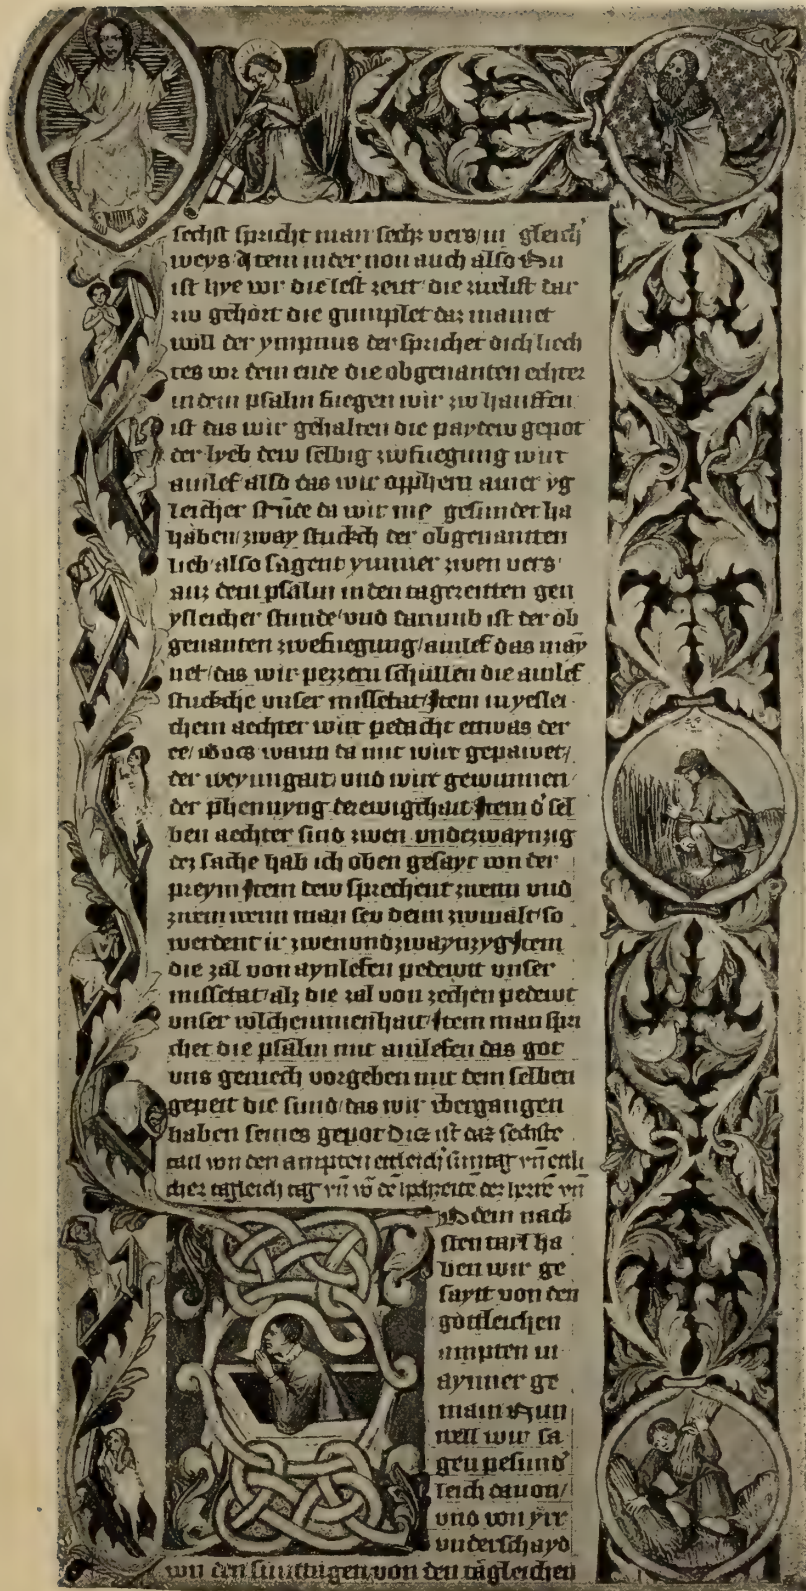 sechst spricht man sechs vers in gleich
weys Item in der non auch also Nu
ist hye wr die lest zeit die zuelist dar
zw gehört die gumplet daz mainet
will der ympnus der sprichet dich liech
tes wr dem ende die obgenanten echter
in dem psalm fuegen wir zw hauffen
ist das wir gehalten die paydew gepot
der lyeb dew selbig zwfuegung wirt
ainlef also das wir opphern ainer yg
leicher stunde da wir gesunder ha
haben zway stuckch der obgenantten
lieb also sagent ymmer zwen vers
auz dem psalm in den tagezeitten gen
ysleicher stunde vnd darumb ist der ob
genanten zwefuegung ainlef das may
net das wir pezzern schullen die ainlef
stuckche vnser missetat Item in yeslei
chem aechter wirt pedacht ettwas der
ee Gocs wann da mit wirt gepawet
der weyungart vnd wirt gewunnen
der phennyng der ewigchait Item d sel
ben aechter sind zwen vnd zwaynzig
der sache hab ich oben gesayt von der
preym Item dew sprechent zwenn vnd
zwen wenn man sev denn zwiualt so
werdent ir zwen vnd zwaynzyg Item
die zal von aynlefen pedewtt vnser
missetat alz die zal von zechen pedewt
vnser volchemmenhait Item man spri
chet die psalm mit ainlefen das got
vns geruech vorgeben mit dem selben
gepett die sund das wir vbergangen
haben seines gepot Diez ist daz sechste
tail von den ampten ettleich suntag vn ettli
cher tagleich tag vn
dem nach
sten tayl ha
ben wir ge
saytt von den
göttleichen
ampten in
aynner ge
main Nun
well wir sa
gen pesund
leich dauon
vnd von yrr
vnderschayd
von den sunttägen von den tägleichen